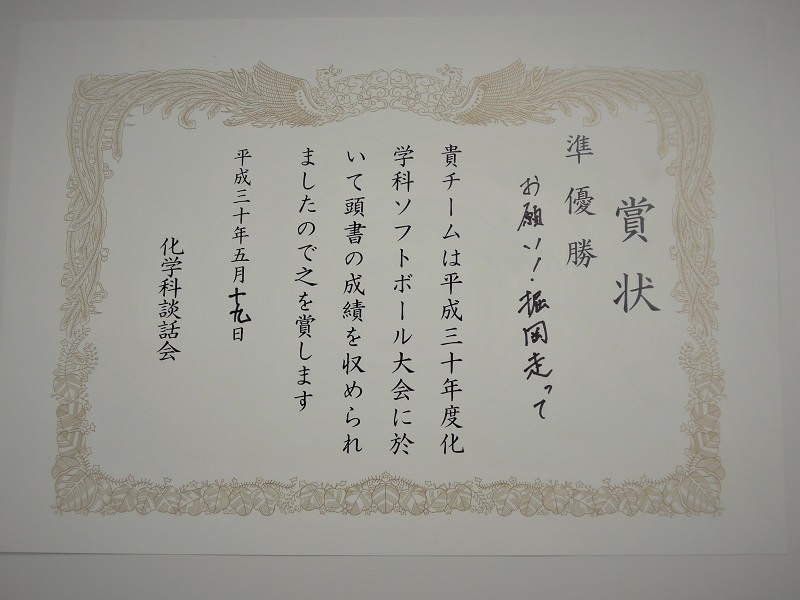 賞状
準優勝
お願い!堀岡走って
貴チームは平成三十年度化
学科ソフトボール大会に於
いて頭書の成績を収められ
ましたので之を賞します
平成三十年五月十九日
化学科談話会